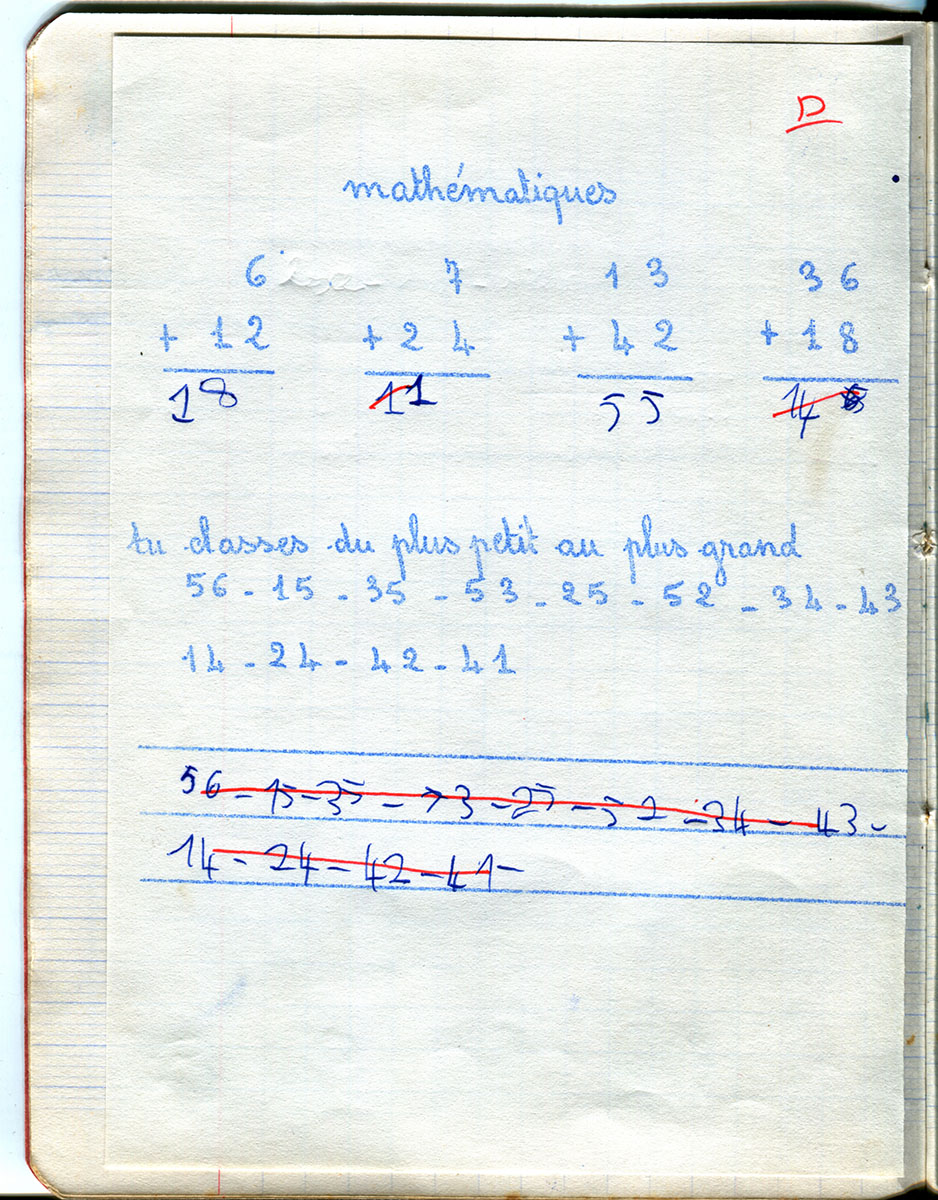 D
mathématiques
6 7 13 36
+ 12 + 24 + 42 + 18
18 11 55 14
tu classes du plus petit au plus grand
56 - 15 - 35 - 53 - 25 - 52 - 34 - 43
14 - 24 - 42 - 41
56 - 15 - 35 - 73 - 25 - 52 - 34 - 43 -
14 - 24 - 42 - 41 -